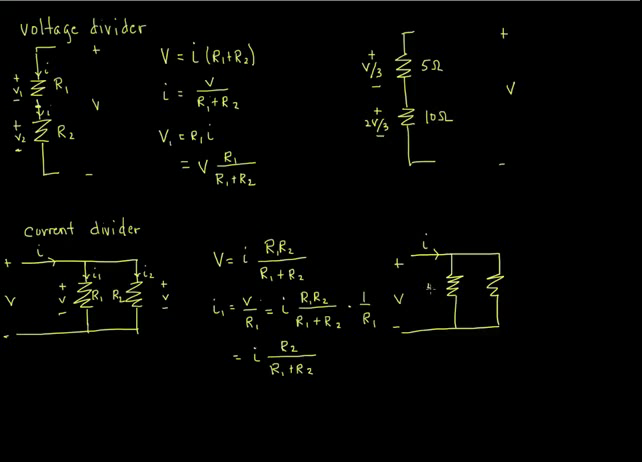 voltage divider
+
i
+
V₁
−
R₁
i
+
V₂
−
R₂
V
−
V = i (R₁+R₂)
i = V / R₁+R₂
V₁ = R₁ i
= V R₁ / R₁+R₂
+
V/3
−
5Ω
+
2V/3
−
10Ω
+
V
−
current divider
i
+
V
−
i₁
+
V
−
R₁
R₂
i₂
+
V
−
V = i R₁R₂ / R₁+R₂
i₁ = V / R₁ = i R₁R₂ / R₁+R₂ · 1 / R₁
= i R₂ / R₁+R₂
i
+
V
−